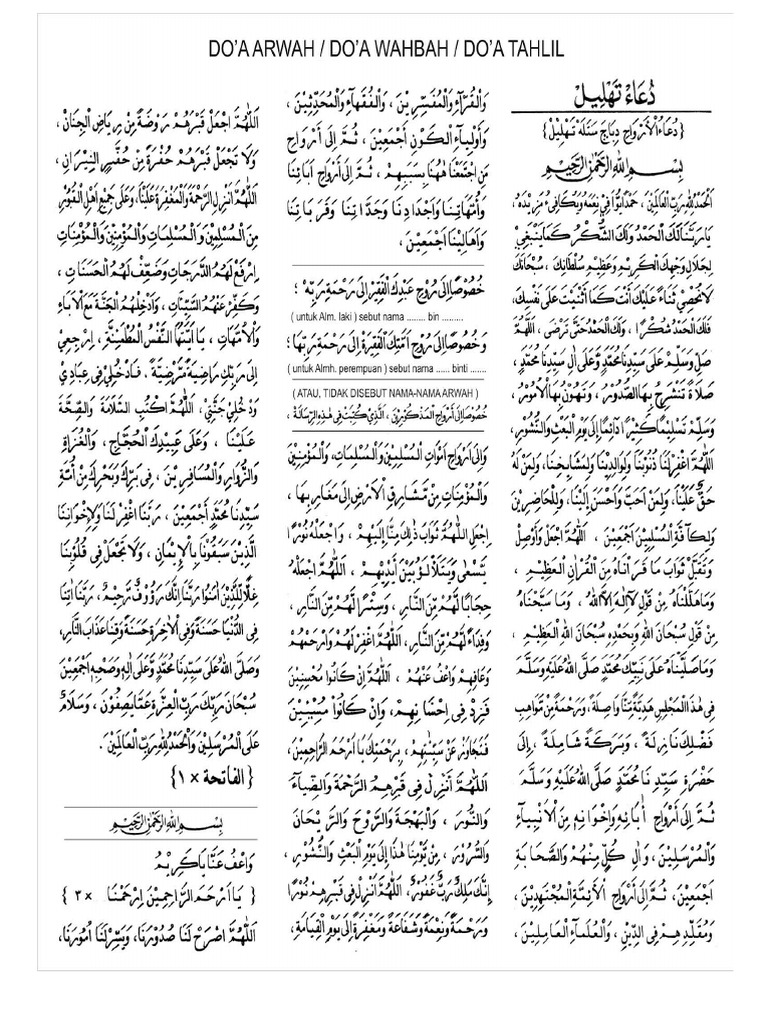 DO'A ARWAH / DO'A WAHBAH / DO'A TAHLIL
دُعَاءْ تَهْلِيْل
{دُعَاءُ الْأَرْوَاحِ دِبَاچَ سَتَلَهْ تَهْلِيْل}
بِسْمِ اللهِ الرَّحْمٰنِ الرَّحِيْمِ
اَلْحَمْدُ لِلّٰهِ رَبِّ الْعَالَمِيْنَ، حَمْدًا يُّوَافِيْ نِعَمَهُ وَيُكَافِىءُ مَزِيْدَهُ،
يَا رَبَّنَا لَكَ الْحَمْدُ وَلَكَ الشُّكْرُ كَمَا يَنْبَغِيْ
لِجَلَالِ وَجْهِكَ الْكَرِيْمِ وَعَظِيْمِ سُلْطَانِكَ، سُبْحَانَكَ
لَا نُحْصِيْ ثَنَاءً عَلَيْكَ أَنْتَ كَمَا أَثْنَيْتَ عَلَى نَفْسِكَ،
فَلَكَ الْحَمْدُ شُكْرًا، وَلَكَ الْحَمْدُ حَتَّى تَرْضَى، اَللّٰهُمَّ
صَلِّ وَسَلِّمْ عَلَى سَيِّدِنَا مُحَمَّدٍ وَّعَلَى اٰلِ سَيِّدِنَا مُحَمَّدٍ،
صَلَاةً تَنْشَرِحُ بِهَا الصُّدُوْرُ، وَتَهُوْنُ بِهَا الْأُمُوْرُ،
وَسَلِّمْ تَسْلِيْمًا كَثِيْرًا دَائِمًا إِلَى يَوْمِ الْبَعْثِ وَالنُّشُوْرِ،
اَللّٰهُمَّ اغْفِرْ لَنَا ذُنُوْبَنَا وَلِوَالِدِيْنَا وَلِمَشَايِخِنَا، وَلِمَنْ لَهُ
حَقٌّ عَلَيْنَا، وَلِمَنْ أَحَبَّ وَأَحْسَنَ إِلَيْنَا، وَلِلْحَاضِرِيْنَ
وَلِكَافَّةِ الْمُسْلِمِيْنَ أَجْمَعِيْنَ، اَللّٰهُمَّ اجْعَلْ وَأَوْصِلْ
وَتَقَبَّلْ ثَوَابَ مَا قَرَأْنَاهُ مِنَ الْقُرْاٰنِ الْعَظِيْمِ،
وَمَا هَلَّلْنَاهُ مِنْ قَوْلِ لَا إِلٰهَ إِلَّا اللهُ، وَمَا سَبَّحْنَاهُ
مِنْ قَوْلِ سُبْحَانَ اللهِ وَبِحَمْدِهِ سُبْحَانَ اللهِ الْعَظِيْمِ،
وَمَا صَلَّيْنَاهُ عَلَى نَبِيِّكَ مُحَمَّدٍ صَلَّى اللهُ عَلَيْهِ وَسَلَّمَ
فِى هٰذَا الْمَجْلِسِ هَدِيَّةً مِّنَّا وَاصِلَةً، وَرَحْمَةً مِنْ تَوَاهِبِ
فَضْلِكَ نَازِلَةً، وَبَرَكَةً شَامِلَةً، إِلَى
حَضْرَةِ سَيِّدِنَا مُحَمَّدٍ صَلَّى اللهُ عَلَيْهِ وَسَلَّمَ
ثُمَّ إِلَى أَرْوَاحِ اٰبَائِهِ وَإِخْوَانِهِ مِنَ الْأَنْبِيَاءِ
وَالْمُرْسَلِيْنَ، وَاٰلِ كُلٍّ مِنْهُمْ وَالصَّحَابَةِ
أَجْمَعِيْنَ، ثُمَّ إِلَى أَرْوَاحِ الْأَئِمَّةِ الْمُجْتَهِدِيْنَ،
وَمُقَلِّدِهِمْ فِى الدِّيْنِ، وَالْعُلَمَاءِ الْعَامِلِيْنَ،
وَالْقُرَّاءِ وَالْمُفَسِّرِيْنَ، وَالْفُقَهَاءِ وَالْمُحَدِّثِيْنَ،
وَأَوْلِيَاءِ الْكَوْنِ أَجْمَعِيْنَ، ثُمَّ إِلَى أَرْوَاحِ
مَنِ اجْتَمَعْنَا هٰهُنَا بِسَبَبِهِمْ، ثُمَّ إِلَى أَرْوَاحِ اٰبَائِنَا
وَأُمَّهَاتِنَا وَأَجْدَادِنَا وَجَدَّاتِنَا وَقَرَبَاتِنَا
وَأَهَالِيْنَا أَجْمَعِيْنَ،
خُصُوْصًا إِلَى رُوْحِ عَبْدِكَ الْفَقِيْرِ إِلَى رَحْمَةِ رَبِّهِ ؛
( untuk Alm. laki ) sebut nama ........ bin .........
وَخُصُوْصًا إِلَى رُوْحِ أَمَتِكَ الْفَقِيْرَةِ إِلَى رَحْمَةِ رَبِّهَا ؛
(untuk Almh. perempuan ) sebut nama ...... binti .......
( ATAU, TIDAK DISEBUT NAMA-NAMA ARWAH )
خُصُوْصًا إِلَى أَرْوَاحِ الْمَذْكُوْرِيْنَ، الَّذِيْ كُتِبَتْ فِى هٰذِهِ الرِّسَالَةِ،
وَإِلَى أَرْوَاحِ أَمْوَاتِ الْمُسْلِمِيْنَ وَالْمُسْلِمَاتِ، وَالْمُؤْمِنِيْنَ
وَالْمُؤْمِنَاتِ مِنْ مَّشَارِقِ الْأَرْضِ إِلَى مَغَارِبِهَا،
اِجْعَلِ اللّٰهُمَّ ثَوَابَ ذٰلِكَ مِنَّا إِلَيْهِمْ، وَاجْعَلْهُ نُوْرًا
يَّسْعَى وَيَتَلَأْلَؤُ بَيْنَ أَيْدِيْهِمْ، اَللّٰهُمَّ اجْعَلْهُ
حِجَابًا لَّهُمْ مِّنَ النَّارِ، وَسِتْرًا لَّهُمْ مِّنَ النَّارِ،
وَفِدَاءً لَّهُمْ مِّنَ النَّارِ، اَللّٰهُمَّ اغْفِرْ لَهُمْ وَارْحَمْهُمْ
وَعَافِهِمْ وَاعْفُ عَنْهُمْ، اَللّٰهُمَّ إِنْ كَانُوْا مُحْسِنِيْنَ
فَزِدْ فِى إِحْسَانِهِمْ، وَإِنْ كَانُوْا مُسِيْئِيْنَ
فَتَجَاوَزْ عَنْ سَيِّئَاتِهِمْ، بِرَحْمَتِكَ يَا أَرْحَمَ الرَّاحِمِيْنَ،
اَللّٰهُمَّ أَنْزِلْ فِى قَبْرِهِمُ الرَّحْمَةَ وَالضِّيَاءَ
وَالنُّوْرَ، وَالْبَهْجَةَ وَالرَّوْحَ وَالرَّيْحَانَ
وَالسُّرُوْرَ، مِنْ يَوْمِنَا هٰذَا إِلَى يَوْمِ الْبَعْثِ وَالنُّشُوْرِ،
إِنَّكَ مَلِكٌ رَبٌّ غَفُوْرٌ، اَللّٰهُمَّ أَنْزِلْ فِى قَبْرِهِمْ نُوْرًا
وَرَحْمَةً وَنِعْمَةً وَشَفَاعَةً وَمَغْفِرَةً إِلَى يَوْمِ الْقِيَامَةِ،
اَللّٰهُمَّ اجْعَلْ قَبْرَهُمْ رَوْضَةً مِّنْ رِيَاضِ الْجِنَانِ،
وَلَا تَجْعَلْ قَبْرَهُمْ حُفْرَةً مِنْ حُفَرِ النِّيْرَانِ،
اَللّٰهُمَّ أَنْزِلِ الرَّحْمَةَ وَالْمَغْفِرَةَ عَلَيْنَا، وَعَلَى جَمِيْعِ أَهْلِ الْقُبُوْرِ
مِنَ الْمُسْلِمِيْنَ وَالْمُسْلِمَاتِ وَالْمُؤْمِنِيْنَ وَالْمُؤْمِنَاتِ
اِرْفَعْ لَهُمُ الدَّرَجَاتِ وَضَعِّفْ لَهُمُ الْحَسَنَاتِ،
وَكَفِّرْ عَنْهُمُ السَّيِّئَاتِ، وَأَدْخِلْهُمُ الْجَنَّةَ مَعَ الْاٰبَاءِ
وَالْأُمَّهَاتِ، يَا أَيَّتُهَا النَّفْسُ الْمُطْمَئِنَّةُ، اِرْجِعِيْ
إِلَى رَبِّكِ رَاضِيَةً مَّرْضِيَّةً، فَادْخُلِيْ فِى عِبَادِيْ
وَادْخُلِيْ جَنَّتِيْ، اَللّٰهُمَّ اكْتُبِ السَّلَامَةَ وَالصِّحَّةَ
عَلَيْنَا، وَعَلَى عَبِيْدِكَ الْحُجَّاجِ، وَالْغُزَاةِ
وَالزُّوَّارِ وَالْمُسَافِرِيْنَ، فِى بَرِّكَ وَبَحْرِكَ مِنْ أُمَّةِ
سَيِّدِنَا مُحَمَّدٍ أَجْمَعِيْنَ، رَبَّنَا اغْفِرْ لَنَا وَلِإِخْوَانِنَا
الَّذِيْنَ سَبَقُوْنَا بِالْإِيْمَانِ، وَلَا تَجْعَلْ فِى قُلُوْبِنَا
غِلًّا لِّلَّذِيْنَ اٰمَنُوْا رَبَّنَا إِنَّكَ رَؤُوْفٌ رَّحِيْمٌ، رَبَّنَا اٰتِنَا
فِى الدُّنْيَا حَسَنَةً وَّفِى الْاٰخِرَةِ حَسَنَةً وَّقِنَا عَذَابَ النَّارِ،
وَصَلَّى اللهُ عَلَى سَيِّدِنَا مُحَمَّدٍ وَّعَلَى اٰلِهِ وَصَحْبِهِ أَجْمَعِيْنَ
سُبْحَانَ رَبِّكَ رَبِّ الْعِزَّةِ عَمَّا يَصِفُوْنَ، وَسَلَامٌ
عَلَى الْمُرْسَلِيْنَ وَالْحَمْدُ لِلّٰهِ رَبِّ الْعَالَمِيْنَ.
{الفاتحة × ١}
بِسْمِ اللهِ الرَّحْمٰنِ الرَّحِيْمِ
وَاعْفُ عَنَّا يَا كَرِيْمُ
{ يَا أَرْحَمَ الرَّاحِمِيْنَ اِرْحَمْنَا ×٣ }
اَللّٰهُمَّ اصْرَحْ لَنَا صُدُوْرَنَا، وَيَسِّرْ لَنَا أُمُوْرَنَا،